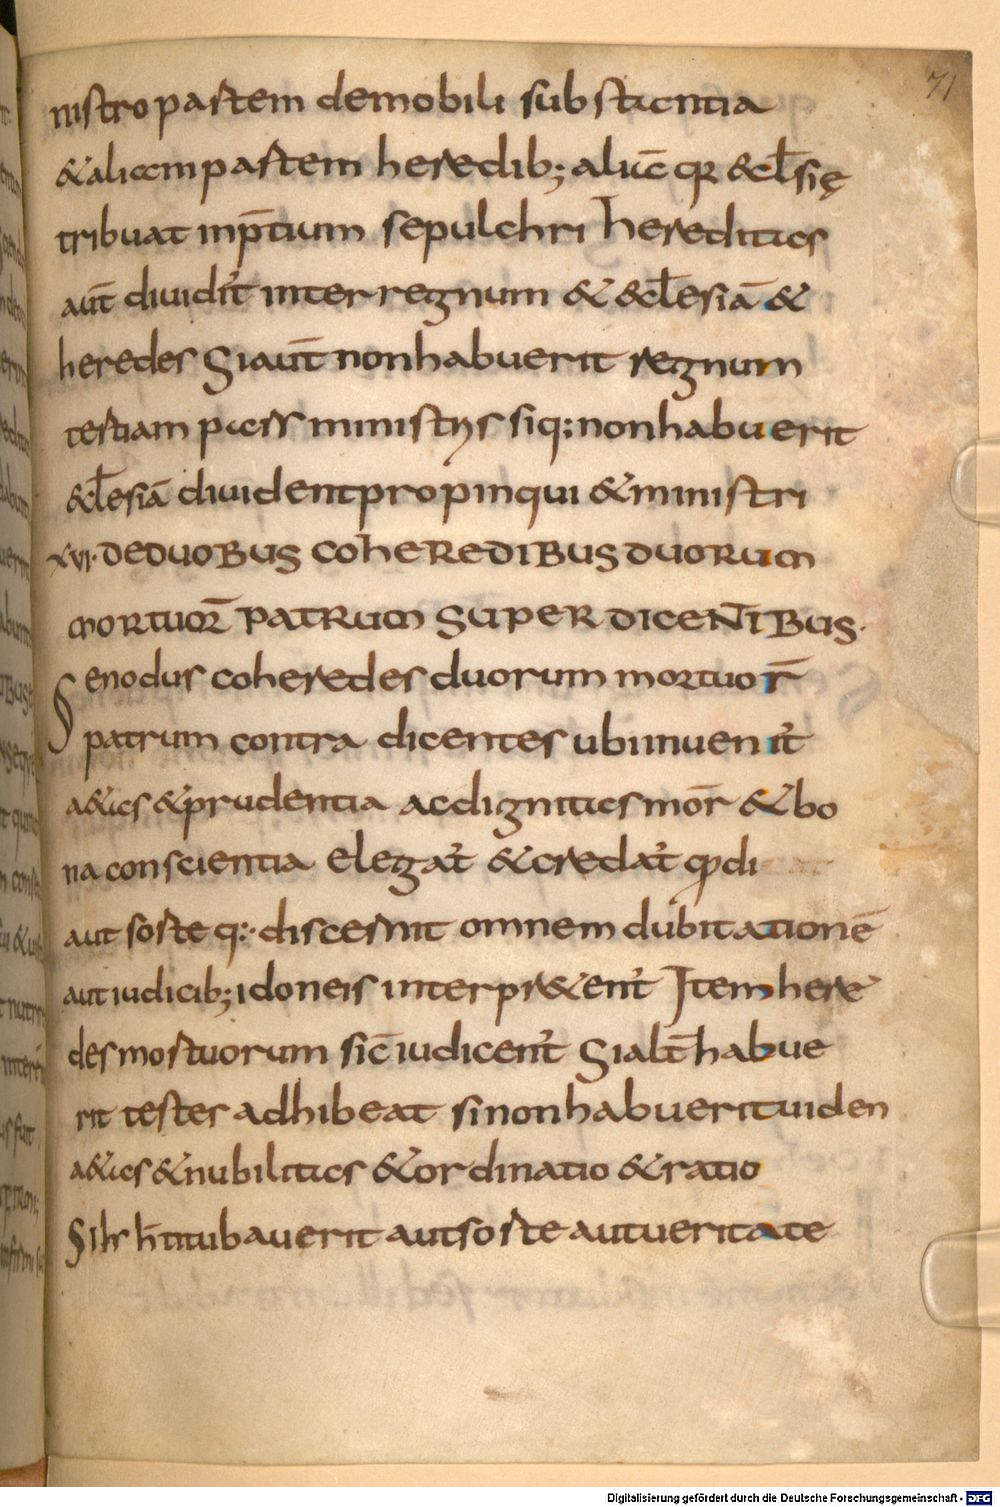 71
nistro partem demobili substantia
&aliam partem heredib; aliut̄ qr &cl̄się
tribuat inp̄tium sepulchri hereditas
aut̄ diuidit̉ inter regnum & &cl̄esiā &
heredes Siaut̄ nonhabuerit regnum
testiam pass ministris siq; nonhabuerit
&cl̄esiā diuident propinqui &ministri
XVI· DEDUOBUS COHEREDIBUS DUORUM
MORTUOR̄ PATRUM SUPER DICENTIBUS·
Senodus coheredes duorum mortuor̄
patrum contra dicentes ubi inuenit̉
a&as &prudentia ac dignitas mor̄ &bo
na conscientia elegat̉ &credat̉ qđ di
aut sorte q:· discernit omnem dubitationē
aut iudicib; idoneis interpr&ent̉ Item here
des mortuorum sic̄ iudicent̉ Si alt̄ habue
rit testes adhibeat si non habuerit uiden
a&as &nubilitas &ordinatio &ratio
Si hr̄ h̄ titubauerit aut sorte aut ueritate
Digitalisierung gefördert durch die Deutsche Forschungsgemeinschaft - DFG